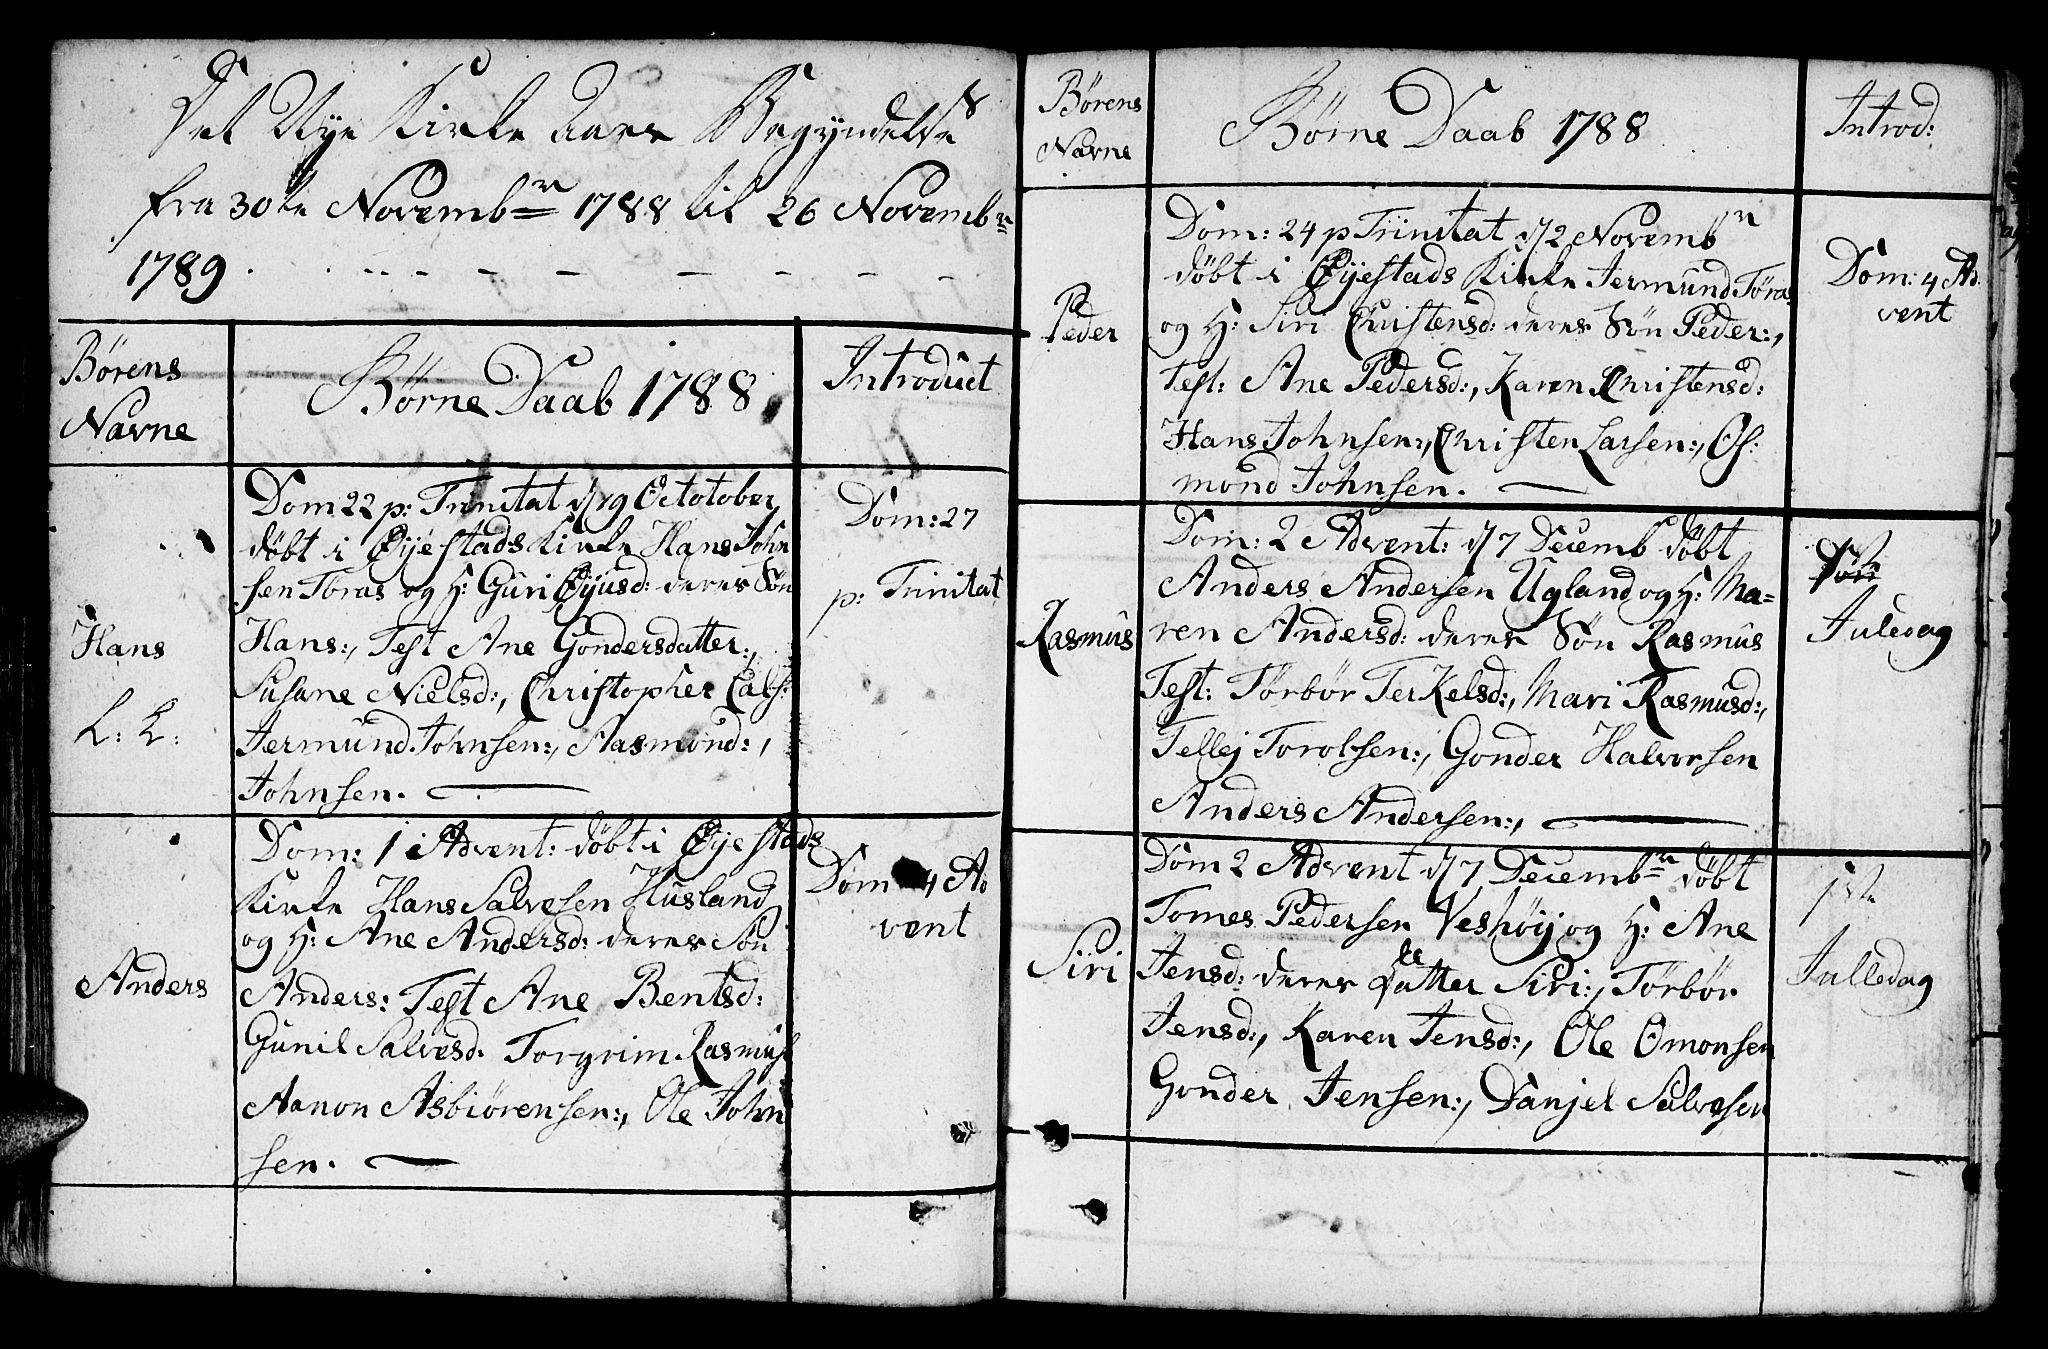 Det Nye Kirke Aars Begyndelse
fra 30te Novembr 1788 til 26 Novembr
1789.
Børens
Navne
Børne Daab 1788
Introduct
Dom 22 p: Trinitat d/19 Octotober
døbt i Øjestads Kirke Hans John
sen Toras og H: Guri Øyusd: deres Søn
Hans:, Test Ane Gondersdatter:,
Susane Nielsd:, Christopher
Jermund Johnsen:, Aasmond:,
Johnsen.
Hans
L: L:
Dom: 27
p: Trinitat
Dom: 1 Advent: døbt i Øjestads
Kirke Hans Salvesen Husland
og H: Ane Andersd: deres Søn
Anders: Test Ane Bentsd:
Gunil Salvesd. Torgrim Rasmus
Aanon Asbiørensen:, Ole John
sen.
Anders
Dom 4 Ad
vent
Børens
Navne
Børne Daab 1788
Introd:
Dom: 24 p Trinitat d/2 Novembr
døbt i Øijestads Kirke Jermund Töras
og H: Siri Christensd: deres Søn Peder:,
Test: Ane Pedersd:, Karen Christensd:
Hans Johnsen:, Christen Larsen:, Os:
mond Johnsen.
Peder
Dom: 4 Ad
vent
Dom: 2 Advent: d/7 Decemb døbt
Anders Andersen Ugland og H: Ma=
ren Andersd: deres Søn Rasmus
Test: Torbør Terkelsd:, Mari Rasmusd:,
Tellej Torolsen:, Gonder Halvorsen
Anders Andersen:,
Rasmus
1st
Juledag
Dom 2 Advent d/7 Decembr døbt
Tomes Pedersen Veshøy og H: Ane
Jensd: deres Datter Siri:, Torbør
Jensd:, Karen Jensd:, Ole Omonsen
Gonder Jensen:, Danjel Salvesen
Siri
1ste
Julledag